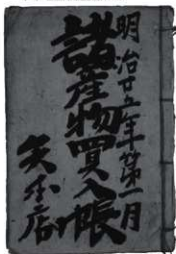 明治廿五年第一月
諸産物買入帳
矢本店